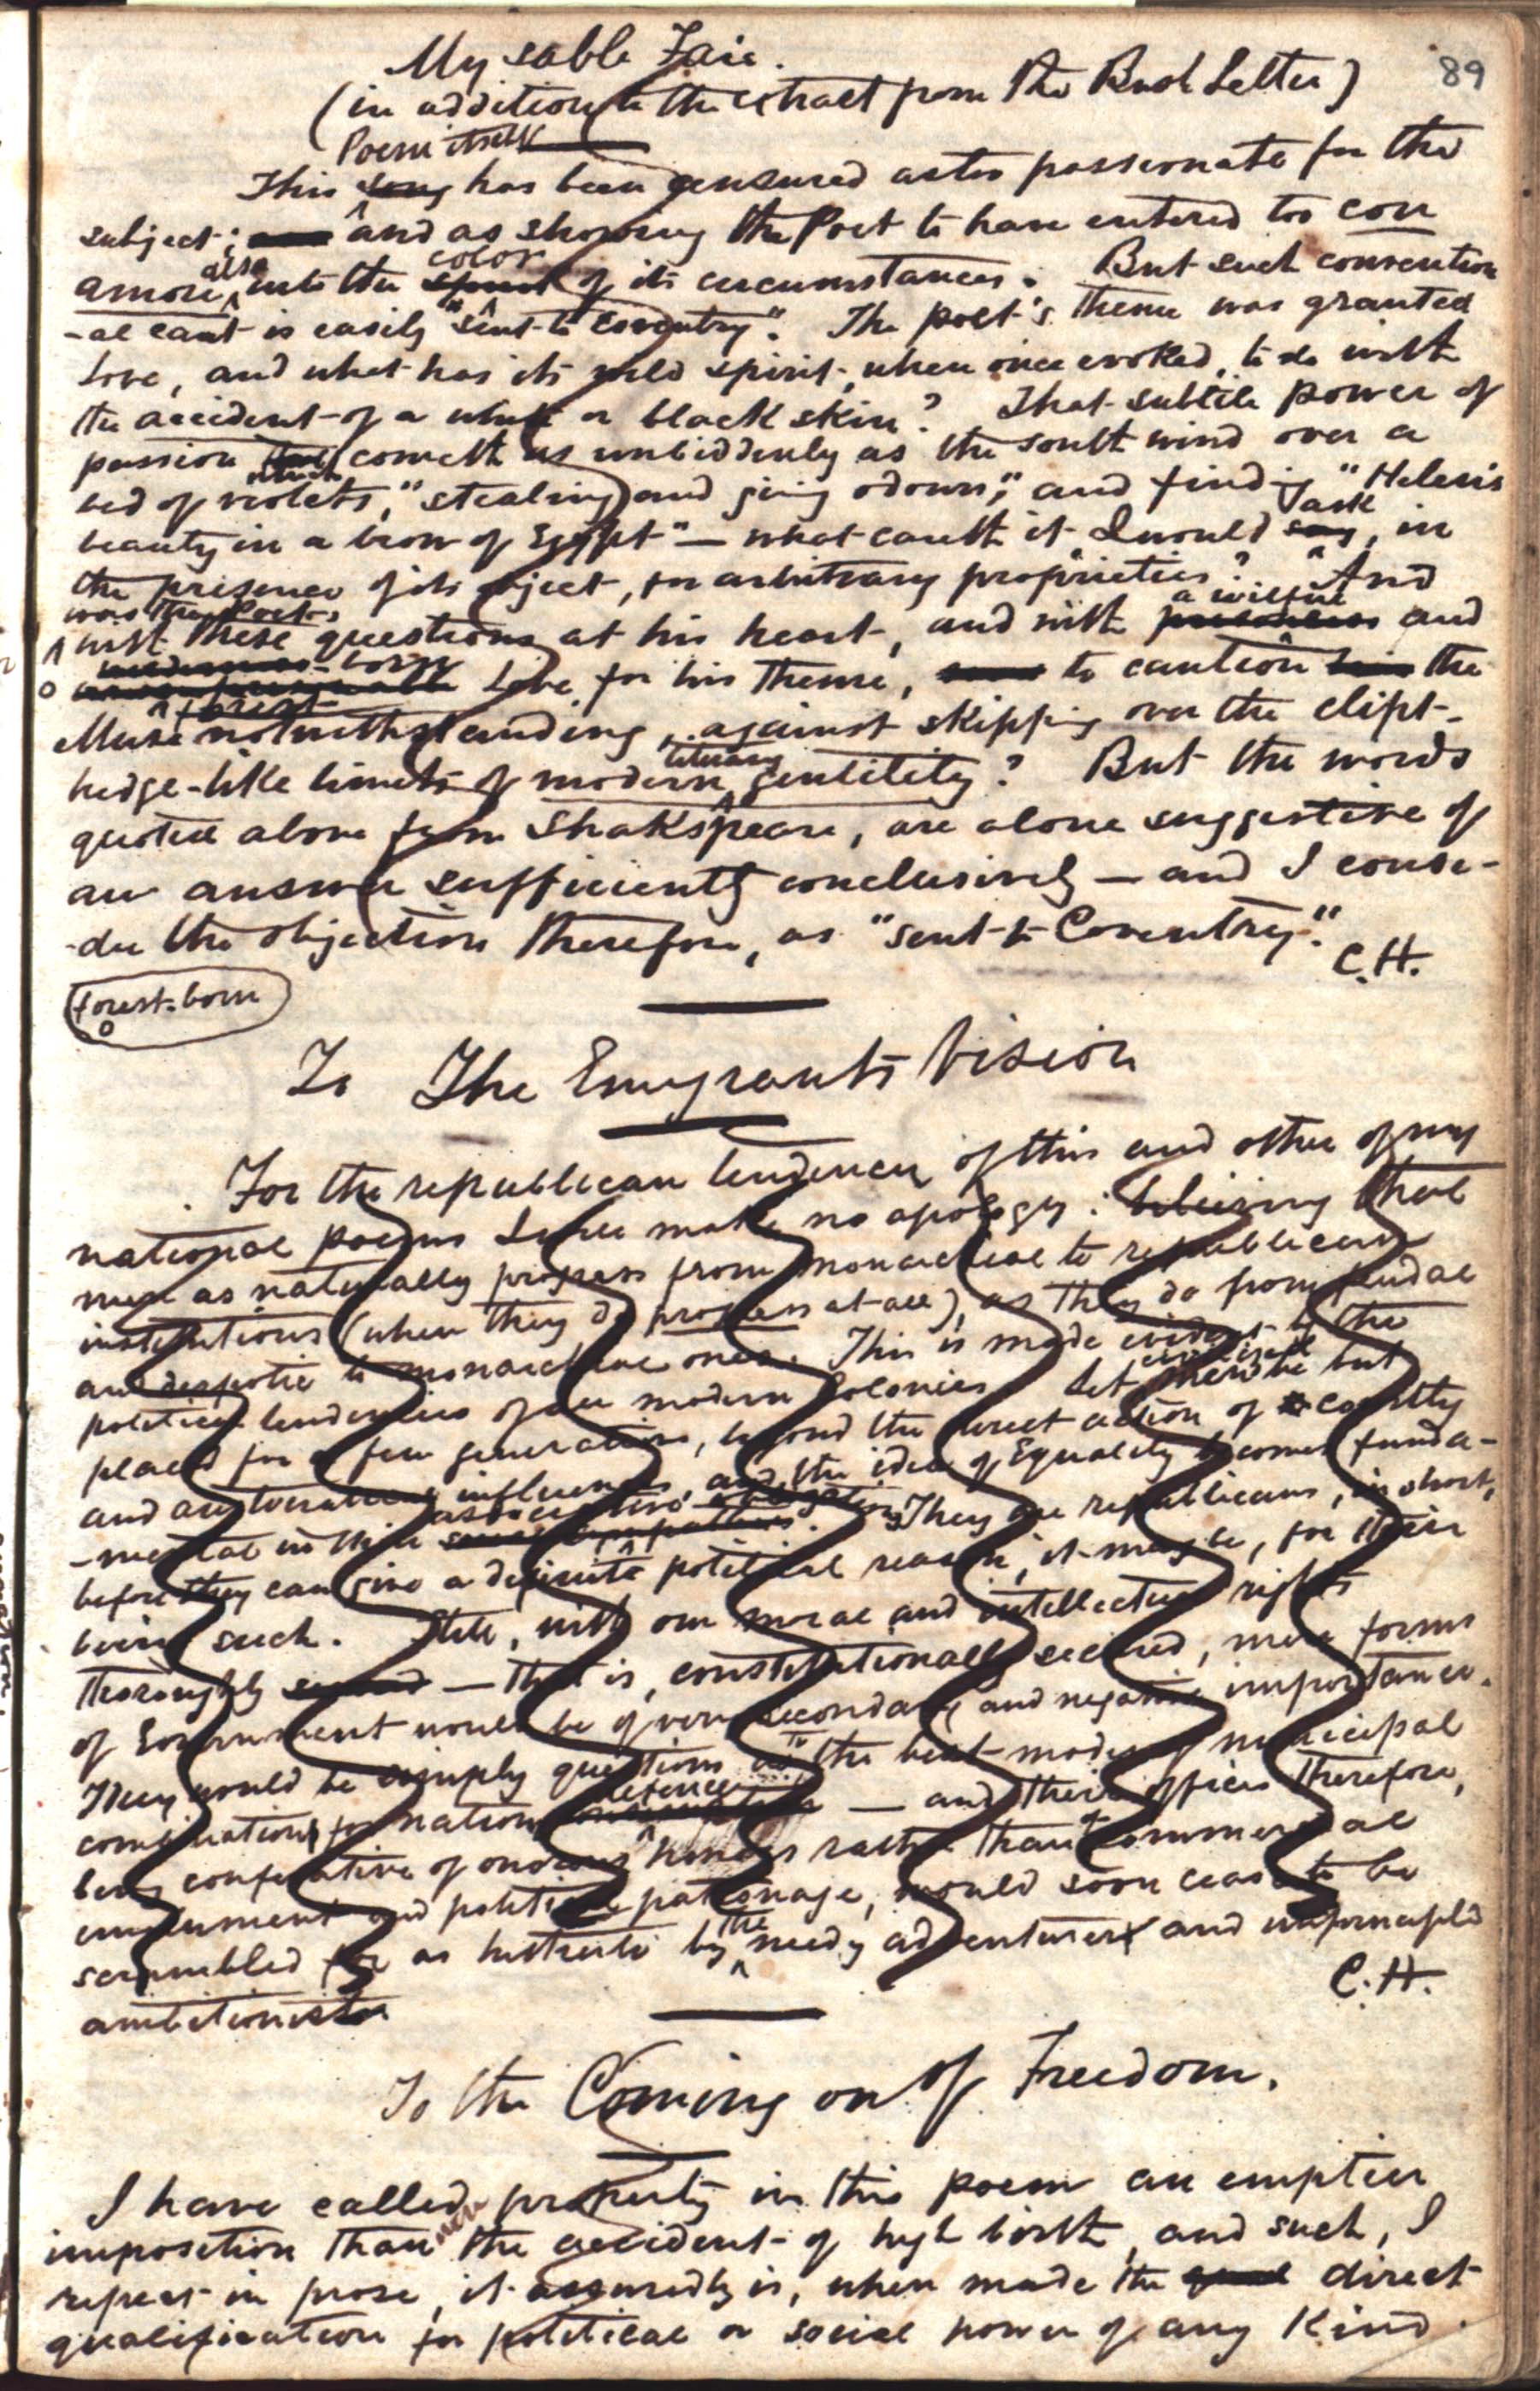 89
My sable Fair.
(in addition to the extract from the Bush Letter)
Poem itself
This song has been censured as too passionate for the
subject; and as showing the Poet to have entered too con
also color
amore, into the spirit of its circumstances. But such convention
-al cant is easily "sent to Coventry". The poet's theme was granted
Love, and what has its wild spirit, when once evoked, to do with
the accident of a white or black skin? That subtile power of
passion that cometh as unbiddenly as the south wind over a
which
bed of violets, "stealing and giving odours," and finding "Helen's
ask
beauty in a brow of Egypt" — what careth it I would say, in
the presence of its object, for arbitrary proprieties? And
was the Poet, a wilful
with these questions at his heart, and with and
born
Love for his theme, to caution him the
forest
Muse notwithstanding, against skipping over the clipt-
literary
hedge-like limits of modern gentility? But the words
quoted above from Shakspeare, are alone suggestive of
an answer sufficiently conclusively — and I consi-
-der the objection therefore, as "sent to Coventry".
C.H.
forest-born
To The Emigrant's Vision
For the republican tendency of this and other of my
national poems I will make no apology: believing that
men as naturally progress from monarchical to republican
institutions (when they do progress at all), as they do from feudal
and despotic to monarchical ones. This is made evident by the
political tendencies of all modern Colonies. Let men be but
placed for a few generations, beyond the direct action of courtly
and aristocratical influences, and the idea of Equality becomes funda-
associative
-mental in their social sympathies. They are republicans, in short,
before they can give a definite political reason, it may be, for their
being such. Still, with our moral and intellectual rights
thoroughly secured — that is, constitutionally secured, mere forms
of Government would be of very secondary and negative importance.
They would be simply questions as to the best modes of municipal
defence
combination for national — and their offices therefore,
being conferative of onerous honors rather than of commercial
emolument and political patronage, would soon cease to be
the
scrambled for as hitherto by needy adventurers and unprincipled
ambitionists
C.H.
To the Coming on of Freedom.
I have called property in this poem an emptier
even
imposition than the accident of high birth, and such, I
repeat in prose, it assuredly is, when made the direct
qualification for political or social power of any kind.